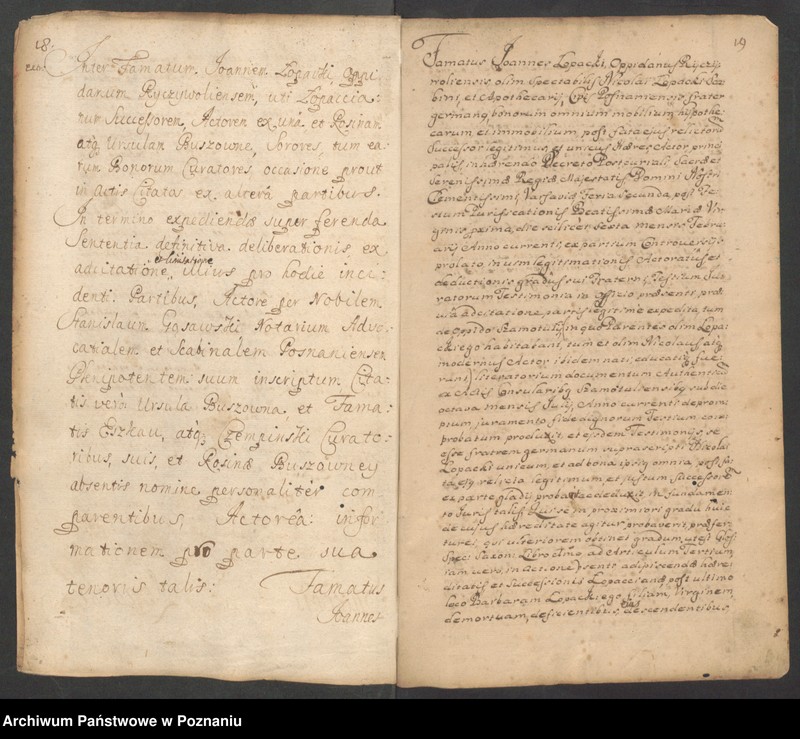 18.
Inter Famatum Joannem Łopacki, Oppi
danum Ryczywoliensem, uti Lopaccia:
num Successorem, Actorem ex una et Rosinam
atq Ursulam Buszowne, Sorores, tum ea:
rum Bonorum Curatores, occasione prout
in Actis Citatas, ex altera partibus.
In termino expediendæ super ferenda
Sententia definitiva deliberationis ex
adcitatione, illius pro hodie inci:
denti: Partibus, Actore per Nobilem
Stanislaum Gąsawski Notarium Advo:
catialem et Scabinalem Posnaniensem
Plenipotentem suum inscriptum Cita:
tis vero Ursula Buszowna et Fama:
tis Eszkau, atq Czempinski Curato:
ribus, suis, et Rosinæ Buszowney
absentis nomine personaliter com
parentibus, Actorea: infor
mationem pro parte sua
tenoris talis: Famatus
Joannes
19
Famatus Joannes Lopacki, Oppidanus Ryczy:
woliensis, olim Spectabilis Nicolai Lopacki Sca:
bini, et Apothecarij, Posnaniensis frater
germang, bonorum omnium mobilium, hypothe:
carum et immobilium, post fata ejus relictoru
Successor legitimus, et unicus Hæres, Actor princi
palis, inhærendo Decreto Postcuriali Sacræ et
Serenissimæ Regiæ Majestatis Domini Nostri
Clementissimi, Varsaviæ Feria Secunda, post Fe:
stum Purificationis Beatissimæ Mariæ Vir:
ginis, proxima, die scilicet Sexta mensis Febru:
arij Anno currenti, ex partium Controversijs
prolato, in vim legitimationis Actoratus et
deductionis gradus sui Fraterni, Testium Ju:
ratorum Testimonia in Officio præsenti, præ:
via adcitatione, partis legitime expedita, tum
de Oppido Szamotuli, in quo Parentes olim Lopa:
ckiego habitabant, cum et olim Nicolaus atq
modernus Actor ibidem nati, educati fue:
runt, literatorium documentum Authenticu
ex Actis Consularibg Szamotuliensibg sub die
octava mensis Julij, Anno currenti depromp:
ptum, juramento fide dignorum Testium com:
probatum produxit, et ejsdem Testimonijs, se
esse fratrem germanum suprascripti Nicolai
Lopacki unicum, et ad bona ipsig omnia, post fa:
ta ejg relicta legitimum, et justum Successorem
ex parte gladij probavit et deduxit. In fundamen
to Juris talis: Cursem proximiori gradu huic
de cujus hæreditate agitur probaverit, præfer:
tur ei, qui ulteriorem obtinet gradum, uti est Glos:
Spec: Saxon: Libro 1mo ad Articulum Tertium,
iam vero, in Actione psenti adipiscendæ hære:
ditatis et Successionis Lopaccianæ post ultimo
loco Barbaram Lopackiego filiam, Virginem,
demortuam, deficientibus ejus descendentibus
Archiwum Państwowe w Poznaniu